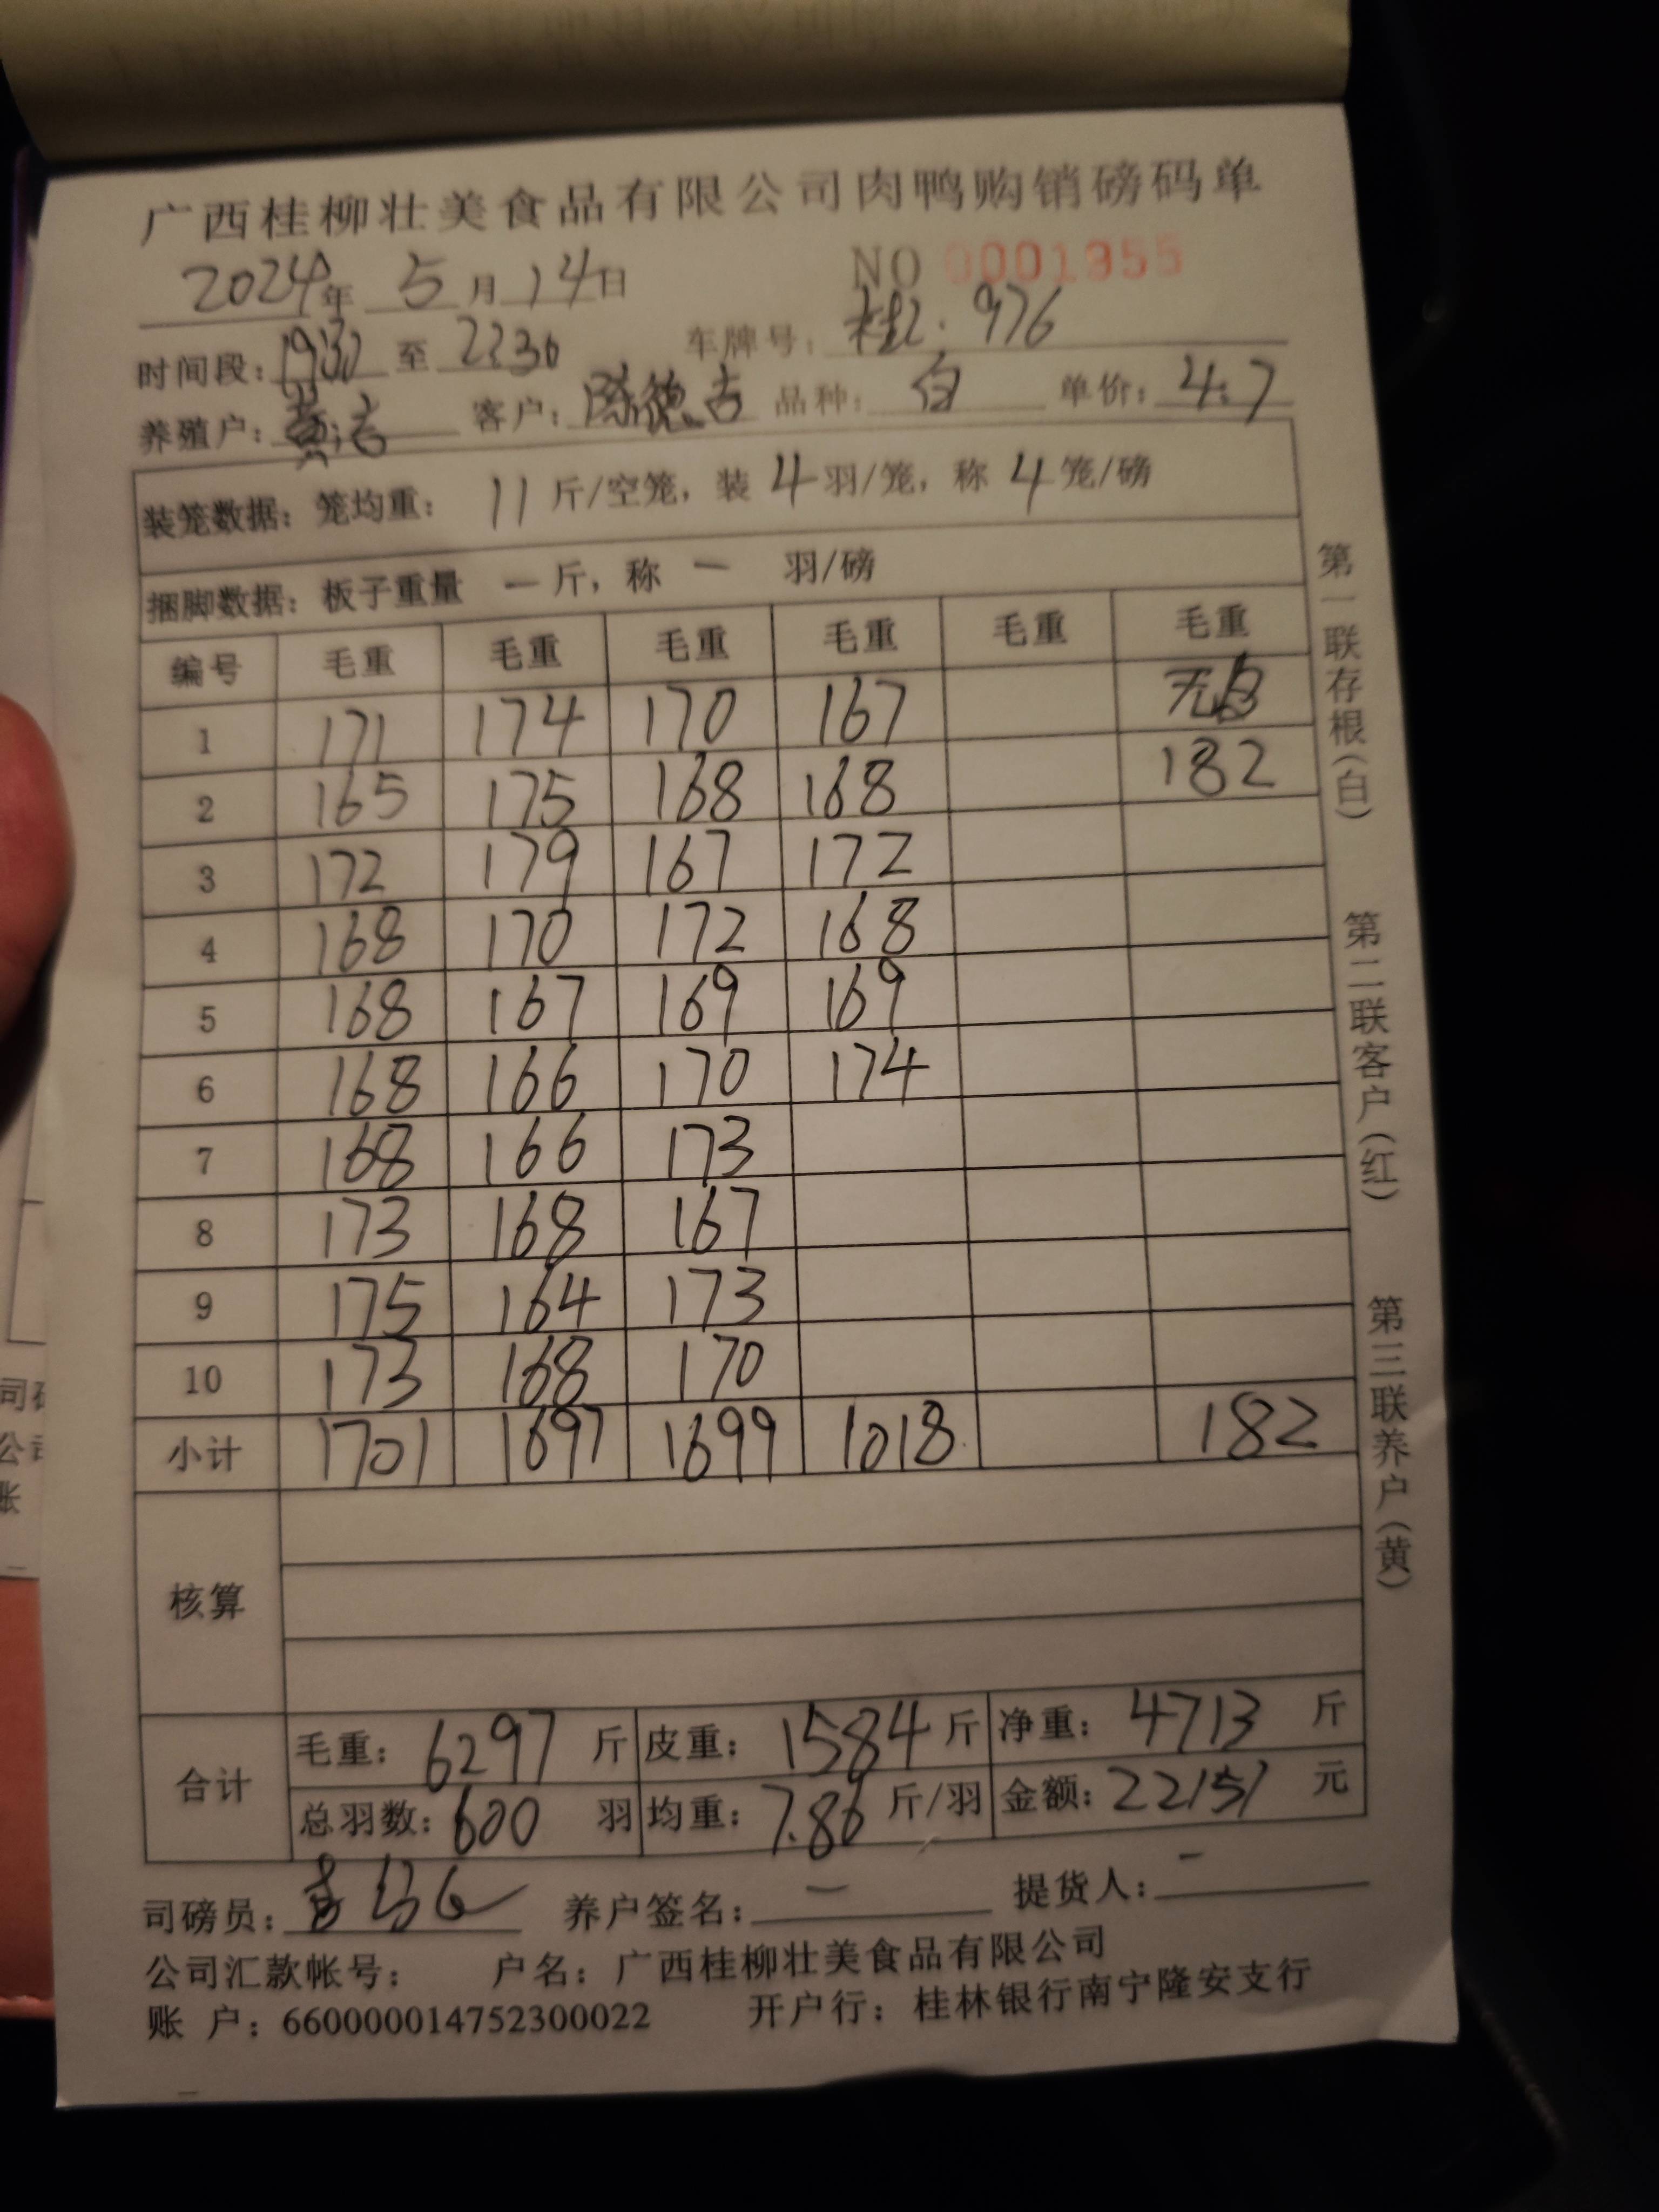 广西桂柳壮美食品有限公司肉鸭购销磅码单
2024年 5月14日 NO 0001955
时间段：1930 至 2230 车牌号：桂L·976
养殖户：黄吉 客户：陈德吉 品种：白 单价：4.7
装笼数据：笼均重：11斤/空笼，装4羽/笼，称4笼/磅
捆脚数据：板子重量 一斤，称 一 羽/磅
编号 毛重 毛重 毛重 毛重 毛重 毛重
1 171 174 170 167
2 165 175 168 168 182
3 172 179 167 172
4 168 170 172 168
5 168 167 169 169
6 168 166 170 174
7 168 166 173
8 173 168 167
9 175 164 173
10 173 168 170
小计 1701 1697 1699 1018 182
核算
合计 毛重：6297 斤 皮重：1584 斤 净重：4713 斤
总羽数：600 羽 均重：7.86 斤/羽 金额：22151 元
司磅员： 养户签名：一 提货人：-
公司汇款帐号： 户名：广西桂柳壮美食品有限公司
账 户：660000014752300022 开户行：桂林银行南宁隆安支行
第一联存根(白) 第二联客户(红) 第三联养户(黄)